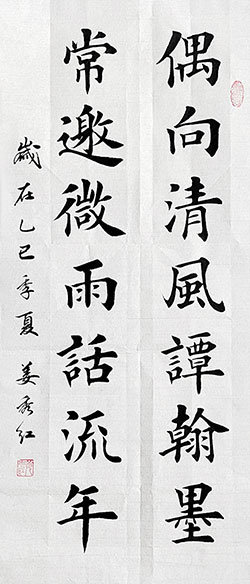 偶向清風譚翰墨
常邀微雨話流年
歲在乙巳季夏 姜秀紅